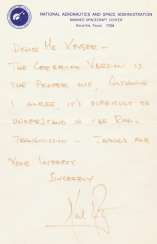 NATIONAL AERONAUTICS AND SPACE ADMINISTRATION
MANNED SPACECRAFT CENTER
HOUSTON, TEXAS 77058
DEAR MR
THE VERSION
IS THE PROPER ONE, ALTHOUGH
I AGREE, IT'S DIFFICULT TO
UNDERSTAND IN THE RADIO
TRANSMISSION - THANKS FOR
YOUR INTEREST
SINCERELY